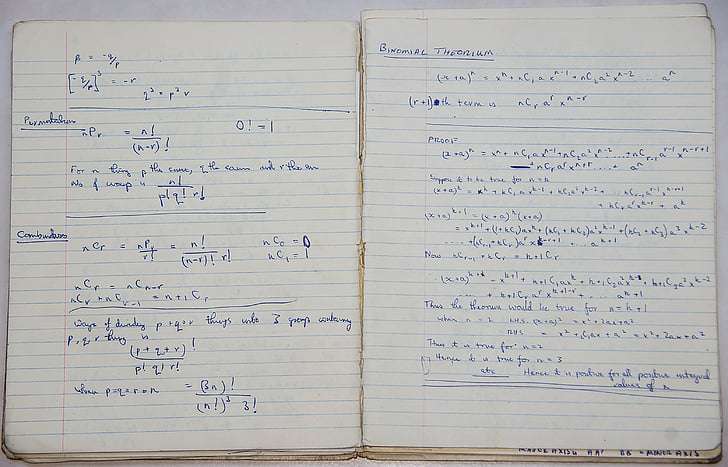 β = -q/p
[-q/p]³ = -r
q³ = p³r
Permutations
nPr = n!/(n-r)!
0! = 1
For n things p the same, q the same and r the same
No of ways is n!/p!q!r!
Combinations
nCr = nPr/r! = n!/(n-r)!r!
nC0 = 0
nC1 = 1
nCr = nCn-r
nCr + nCr-1 = n+1Cr
Ways of dividing p+q+r things into 3 groups containing
p, q, r things is
(p+q+r)!/p!q!r!
when p=q=r=n = (3n)!/(n!)³3!
BINOMIAL THEORIUM
(x+a)ⁿ = xⁿ + nC1 a xⁿ⁻¹ + nC2 a² xⁿ⁻² ... aⁿ
(r+1)th term is nCr aʳ xⁿ⁻ʳ
PROOF
(x+a)ⁿ = xⁿ + nC1 a xⁿ⁻¹ + nC2 a² xⁿ⁻² ..... + nCr-1 aʳ⁻¹ xⁿ⁻ʳ⁺¹
+ nCr aʳ xⁿ⁻ʳ ... + aⁿ
Suppose it to be true for n=k
(x+a)ᵏ = xᵏ + kC1 a xᵏ⁻¹ + kC2 a² xᵏ⁻² ... kCr-1 aʳ⁻¹ xᵏ⁻ʳ⁺¹
+ kCr aʳ xᵏ⁻ʳ + aᵏ
(x+a)ᵏ⁺¹ = (x+a)ᵏ(x+a)
= xᵏ⁺¹ + (1+kC1) a xᵏ + (kC1+kC2) a² xᵏ⁻¹ + (kC2+kC3) a³ xᵏ⁻²
.... + (kCr-1 + kCr) aʳ xᵏ⁻ʳ⁺¹ ... + aᵏ⁺¹
Now kCr-1 + kCr = k+1Cr
(x+a)ᵏ⁺¹ = xᵏ⁺¹ + k+1C1 a xᵏ + k+1C2 a² xᵏ⁻¹ + k+1C3 a³ xᵏ⁻²
.... + k+1Cr aʳ xᵏ⁺¹⁻ʳ ... aᵏ⁺¹
Thus the theorium would be true for n=k+1
when n=2 LHS (x+a)² = x²+2ax+a²
RHS = x² + 2C1 ax + a² = x²+2ax+a²
Thus it is true for n=2
Hence it is true for n=3
etc Hence it is positive for all positive integral
values of n
MAJOR AXIS AA' BB' = MINOR AXIS